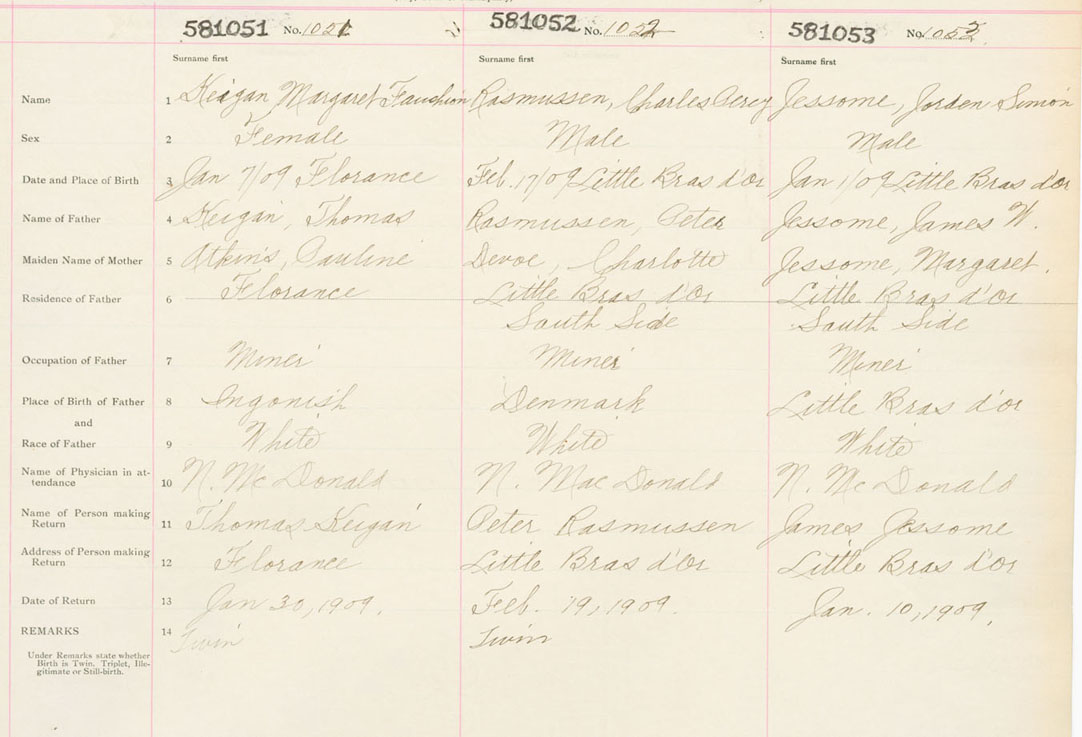 581051 No. 1051 581052 No. 1052 581053 No. 1053
Surname first Surname first Surname first
Name 1 Keigan Margaret Rasmussen, Charles Percy Jessome, Jorden Simon
Sex 2 Female Male Male
Date and Place of Birth 3 Jan 7/09 Florance Feb. 17/09 Little Bras d'Or Jan 1/09 Little Bras d'Or
Name of Father 4 Keigan, Thomas Rasmussen, Peter Jessome, James W.
Maiden Name of Mother 5 Atkins, Pauline Devoe, Charlotte Jessome, Margaret.
Residence of Father 6 Florance Little Bras d'Or Little Bras d'Or
South Side South Side
Occupation of Father 7 Miner Miner Miner
Place of Birth of Father 8 Ingonish Denmark Little Bras d'Or
and
Race of Father 9 White White White
Name of Physician in at-
tendance 10 N. McDonald N. MacDonald N. McDonald
Name of Person making
Return 11 Thomas Keigan Peter Rasmussen James Jessome
Address of Person making
Return 12 Florance Little Bras d'Or Little Bras d'Or
Date of Return 13 Jan 30, 1909. Feb. 19, 1909. Jan. 10, 1909.
REMARKS 14 Twin Twin
Under Remarks state whether
Birth is Twin. Triplet, Ille-
gitimate or Still-birth.